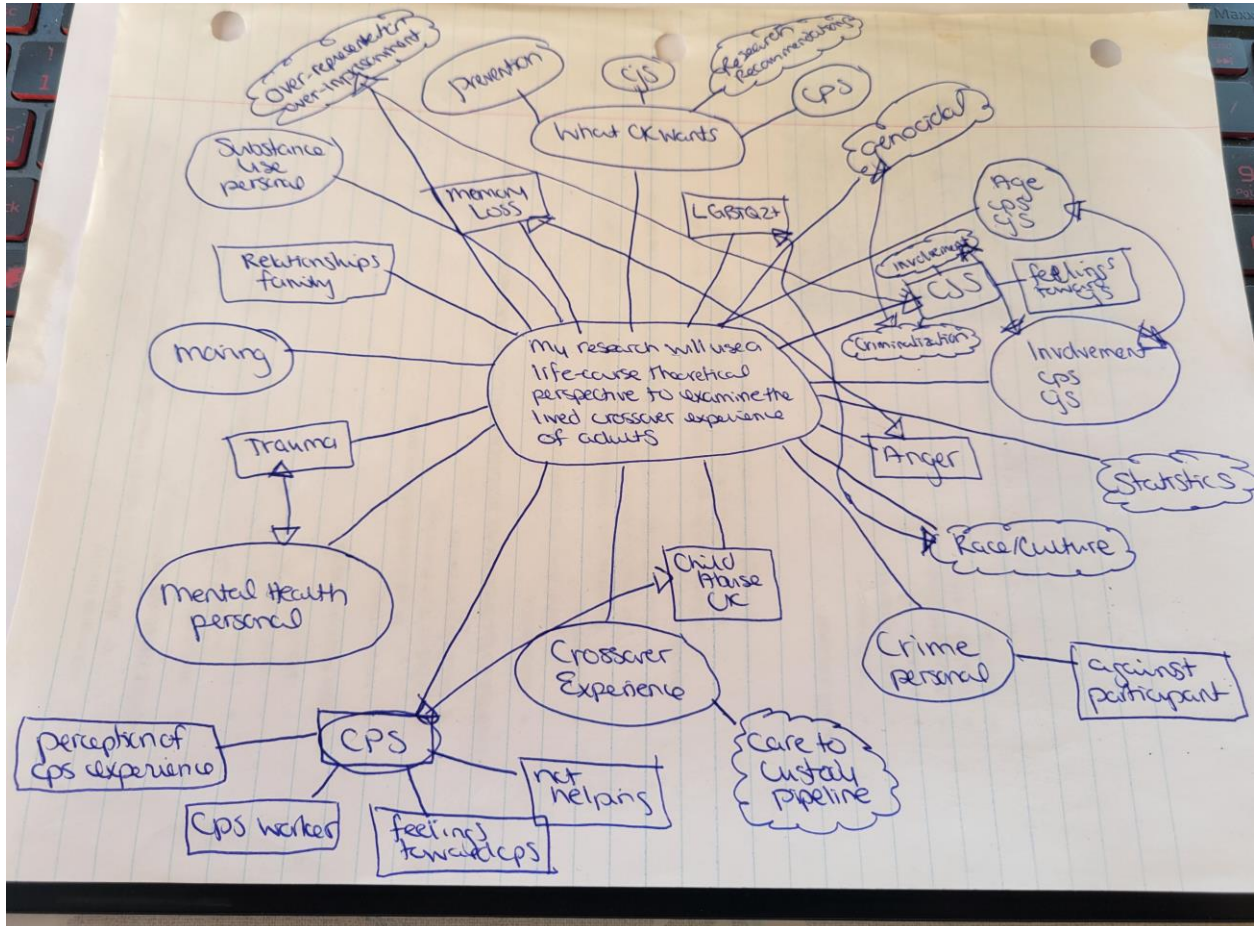 Over-representation
over-imprisonment
prevention
CJS
Research
Recommendations
CPS
What CK Wants
genocidal
Substance
Use
personal
memory
Loss
LGBTQ2+
Age
CPS
CJS
Relationships
family
Involvement
CJS
feelings
towards
CJS
Criminalization
Involvement
CPS
CJS
moving
My research will use a
life-course theoretical
perspective to examine the
lived crossover experience
of adults
Trauma
Anger
Statistics
Race/Culture
Child
Abuse
CK
Mental Health
personal
Crossover
Experience
Crime
personal
against
participant
CPS
perception of
cps experience
not
helping
Care to
Custody
pipeline
Cps worker
feelings
toward cps